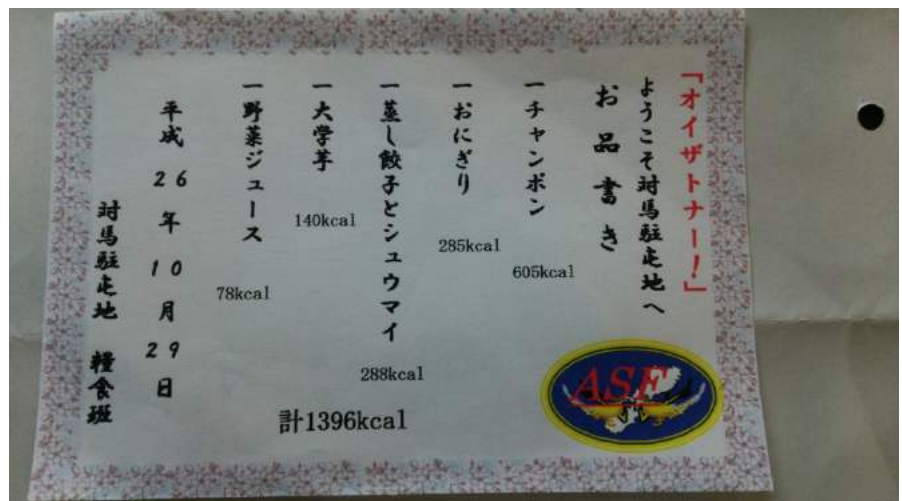 「オイザトナー!」
ようこそ対馬駐屯地へ
お品書き
一チャンポン
605kcal
一おにぎり
285kcal
一蒸し餃子とシュウマイ
288kcal
一大学芋
140kcal
一野菜ジュース
78kcal
計1396kcal
平成26年10月29日
対馬駐屯地 糧食班
ASF